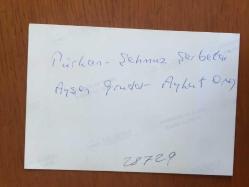 Nürhan - Şehmuz Şerbetçi
Ayşen Gruda - Aykut Oray
28729